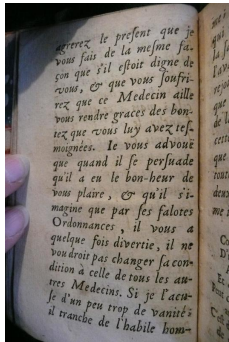 agrerez le present que je
vous fais de la mesme fa-
çon que s'il estoit digne de
vous, & que vous souffri-
rez que ce Medecin aille
vous rendre graces des bon-
tez que vous luy avez tes-
moignées. Ie vous advoüe
que quand il se persuade
qu'il a eu le bon-heur de
vous plaire, & qu'il s'i-
magine que par ses falotes
Ordonnances, il vous a
quelque fois divertie, il ne
voudroit pas changer sa con-
dition à celle de tous les au-
tres Medecins. Si je l'acu-
se d'un peu trop de vanité:
il tranche de l'habile hom-